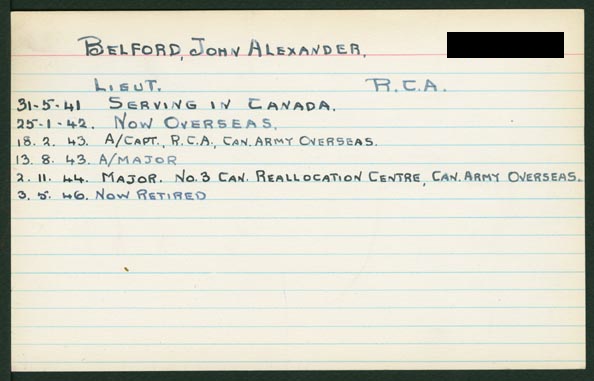 BELFORD, JOHN ALEXANDER.
LIEUT. R.C.A.
31-5-41 SERVING IN CANADA.
25-1-42. NOW OVERSEAS.
18.2.43. A/CAPT., R.C.A., CAN. ARMY OVERSEAS.
13.8.43. A/MAJOR
2.11.44. MAJOR. NO.3 CAN. REALLOCATION CENTRE, CAN. ARMY OVERSEAS.
3.5.46. NOW RETIRED